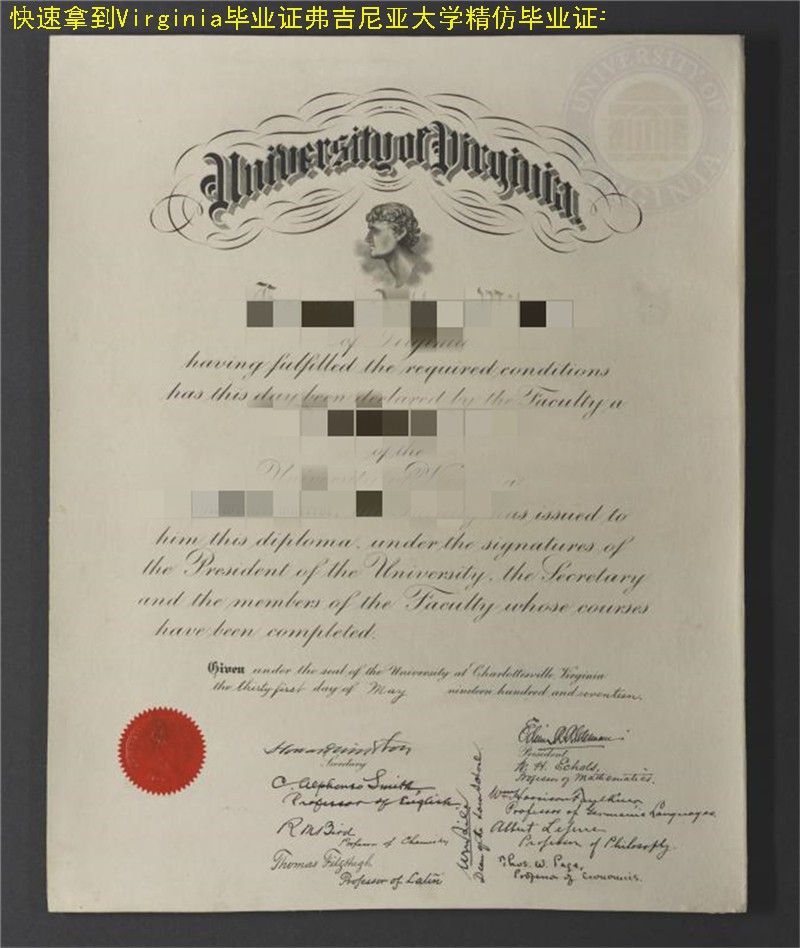 快速拿到Virginia毕业证弗吉尼亚大学精仿毕业证
UNIVERSITY OF VIRGINIA
University of Virginia.
of Virginia
having fulfilled the required conditions
has this day been declared by the Faculty a
of the
University
as issued to
him this diploma, under the signatures of
the President of the University, the Secretary
and the members of the Faculty whose courses
have been completed.
Given under the seal of the University at Charlottesville, Virginia
the thirty first day of May nineteen hundred and seventeen.
Secretary
C. Alphonso Smith,
Professor of English.
R M Bird
Professor of Chemistry
Thomas FitzHugh
Professor of Latin
Edwin A. Alderman
President.
W. H. Echols,
Professor of Mathematics.
Wm Harrison Faulkner
Professor of Germanic Languages.
Albert Lefevre
Professor of Philosophy.
Thos. W. Page,
Professor of Economics.